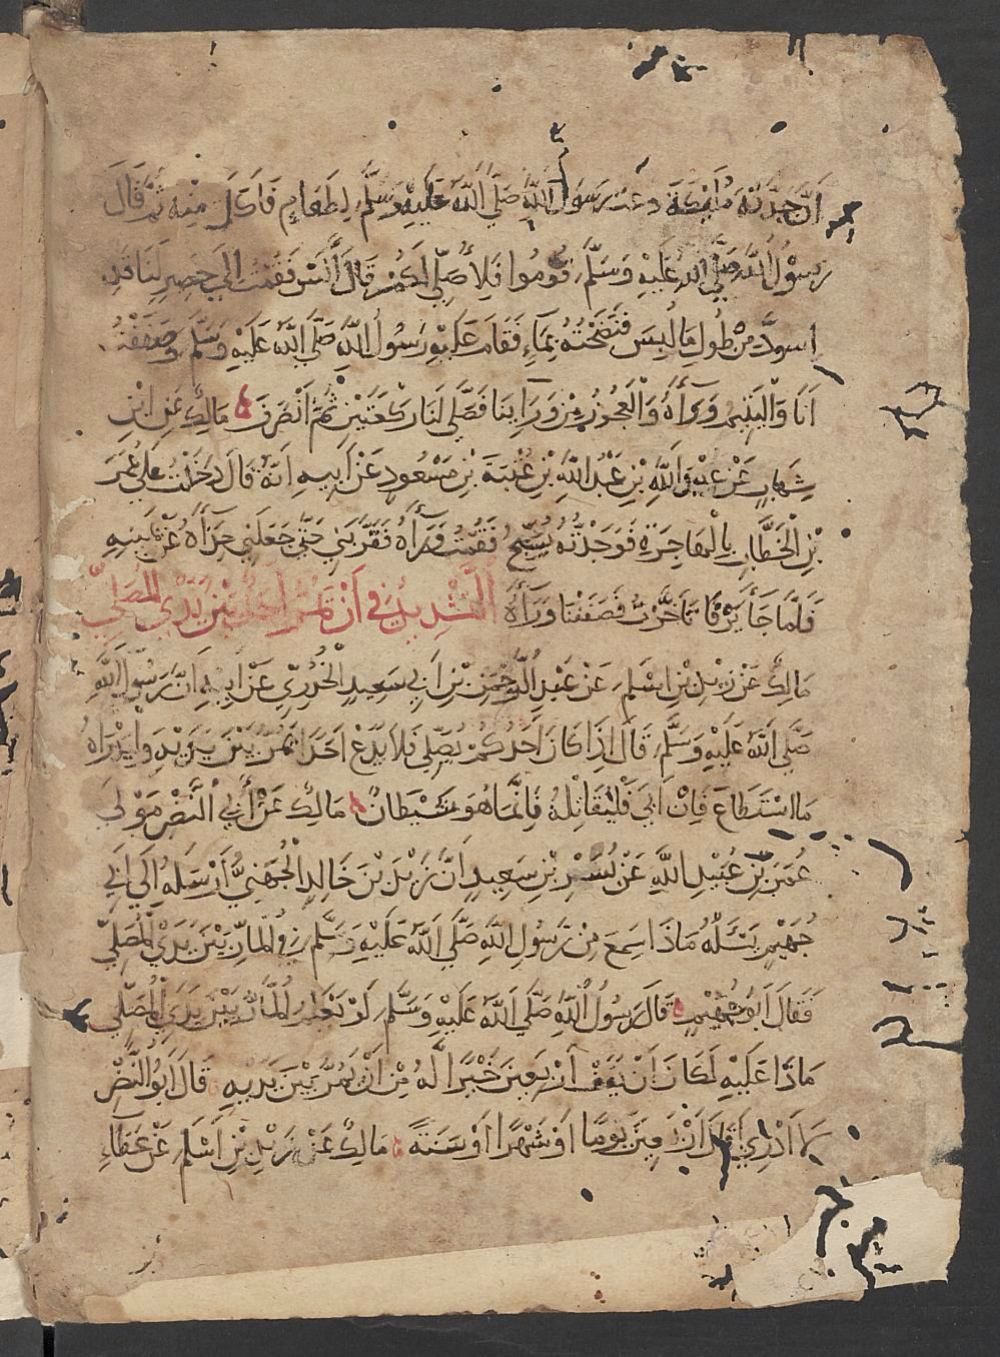 أن جدته مليكة دعت رسول الله صلى الله عليه وسلم لطعام فأكل منه ثم قال
رسول الله صلى الله عليه وسلم قوموا فلأصلي لكم قال أنس فقمت إلى حصير لنا قد
اسود من طول ما لبس فنضحته بماء فقام عليه رسول الله صلى الله عليه وسلم وصففت
أنا واليتيم وراءه والعجوز من ورائنا فصلى لنا ركعتين ثم انصرف مالك عن ابن
شهاب عن عبيد الله بن عبد الله بن عتبة بن مسعود عن أبيه أنه قال دخلت على عمر
بن الخطاب بالهاجرة فوجدته يسبح فقمت وراءه فقربني حتى جعلني حذاءه عن يمينه
فلما جاء يرفا تأخرت فصففنا وراءه التشديد في أن يمر أحد بين يدي المصلي
مالك عن زيد بن أسلم عن عبد الرحمن بن أبي سعيد الخدري عن أبيه أن رسول الله
صلى الله عليه وسلم قال إذا كان أحدكم يصلي فلا يدع أحدا يمر بين يديه وليدرأه
ما استطاع فإن أبى فليقاتله فإنما هو شيطان مالك عن أبي النضر مولى
عمر بن عبيد الله عن بسر بن سعيد أن زيد بن خالد الجهني أرسله إلى أبي
جهيم يسئله ماذا سمع من رسول الله صلى الله عليه وسلم في المار بين يدي المصلي
فقال أبو جهيم قال رسول الله صلى الله عليه وسلم لو يعلم المار بين يدي المصلي
ماذا عليه لكان أن يقف أربعين خيرا له من أن يمر بين يديه قال أبو النضر
لا أدري أقال أربعين يوما أو شهرا أو سنة مالك عن زيد بن أسلم عن عطاء